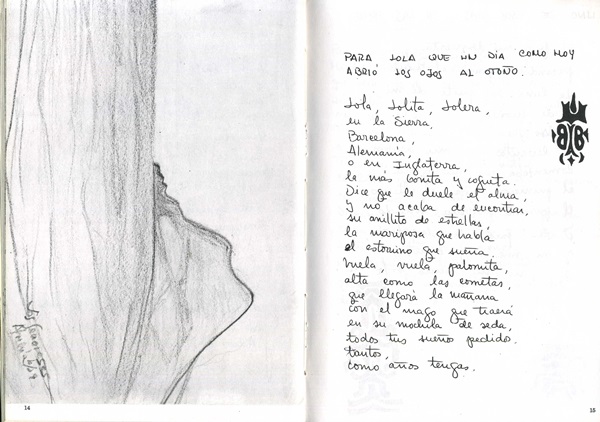 14
PARA LOLA QUE UN DÍA COMO HOY
ABRIÓ LOS OJOS AL OTOÑO.
Lola, Lolita, Lolera,
en la Sierra.
Barcelona,
Alemania,
o en Inglaterra,
la más bonita y coqueta.
Dice que le duele el alma,
y no acaba de encontrar,
su anillito de estrellas,
la mariposa que habla
el estornino que sueña.
Vuela, vuela, palomita,
alta como las cometas,
que llegará la mañana
con el mago que traerá
en su mochila de seda,
todos tus sueño pedido.
tantos,
como años tengas.
15